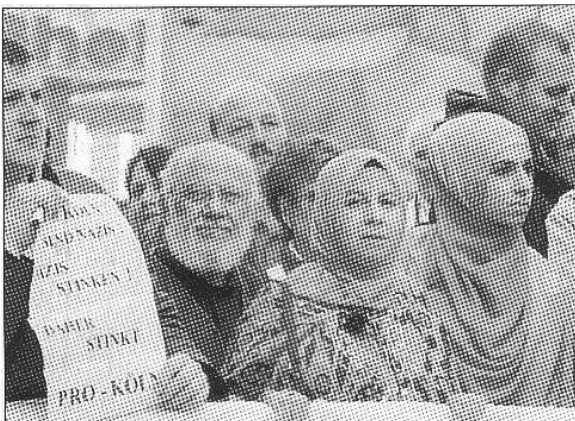 KÖLN
SIND NAZIS
AZIS
STINKEN !
DAHER
STINKT
PRO - KÖLN